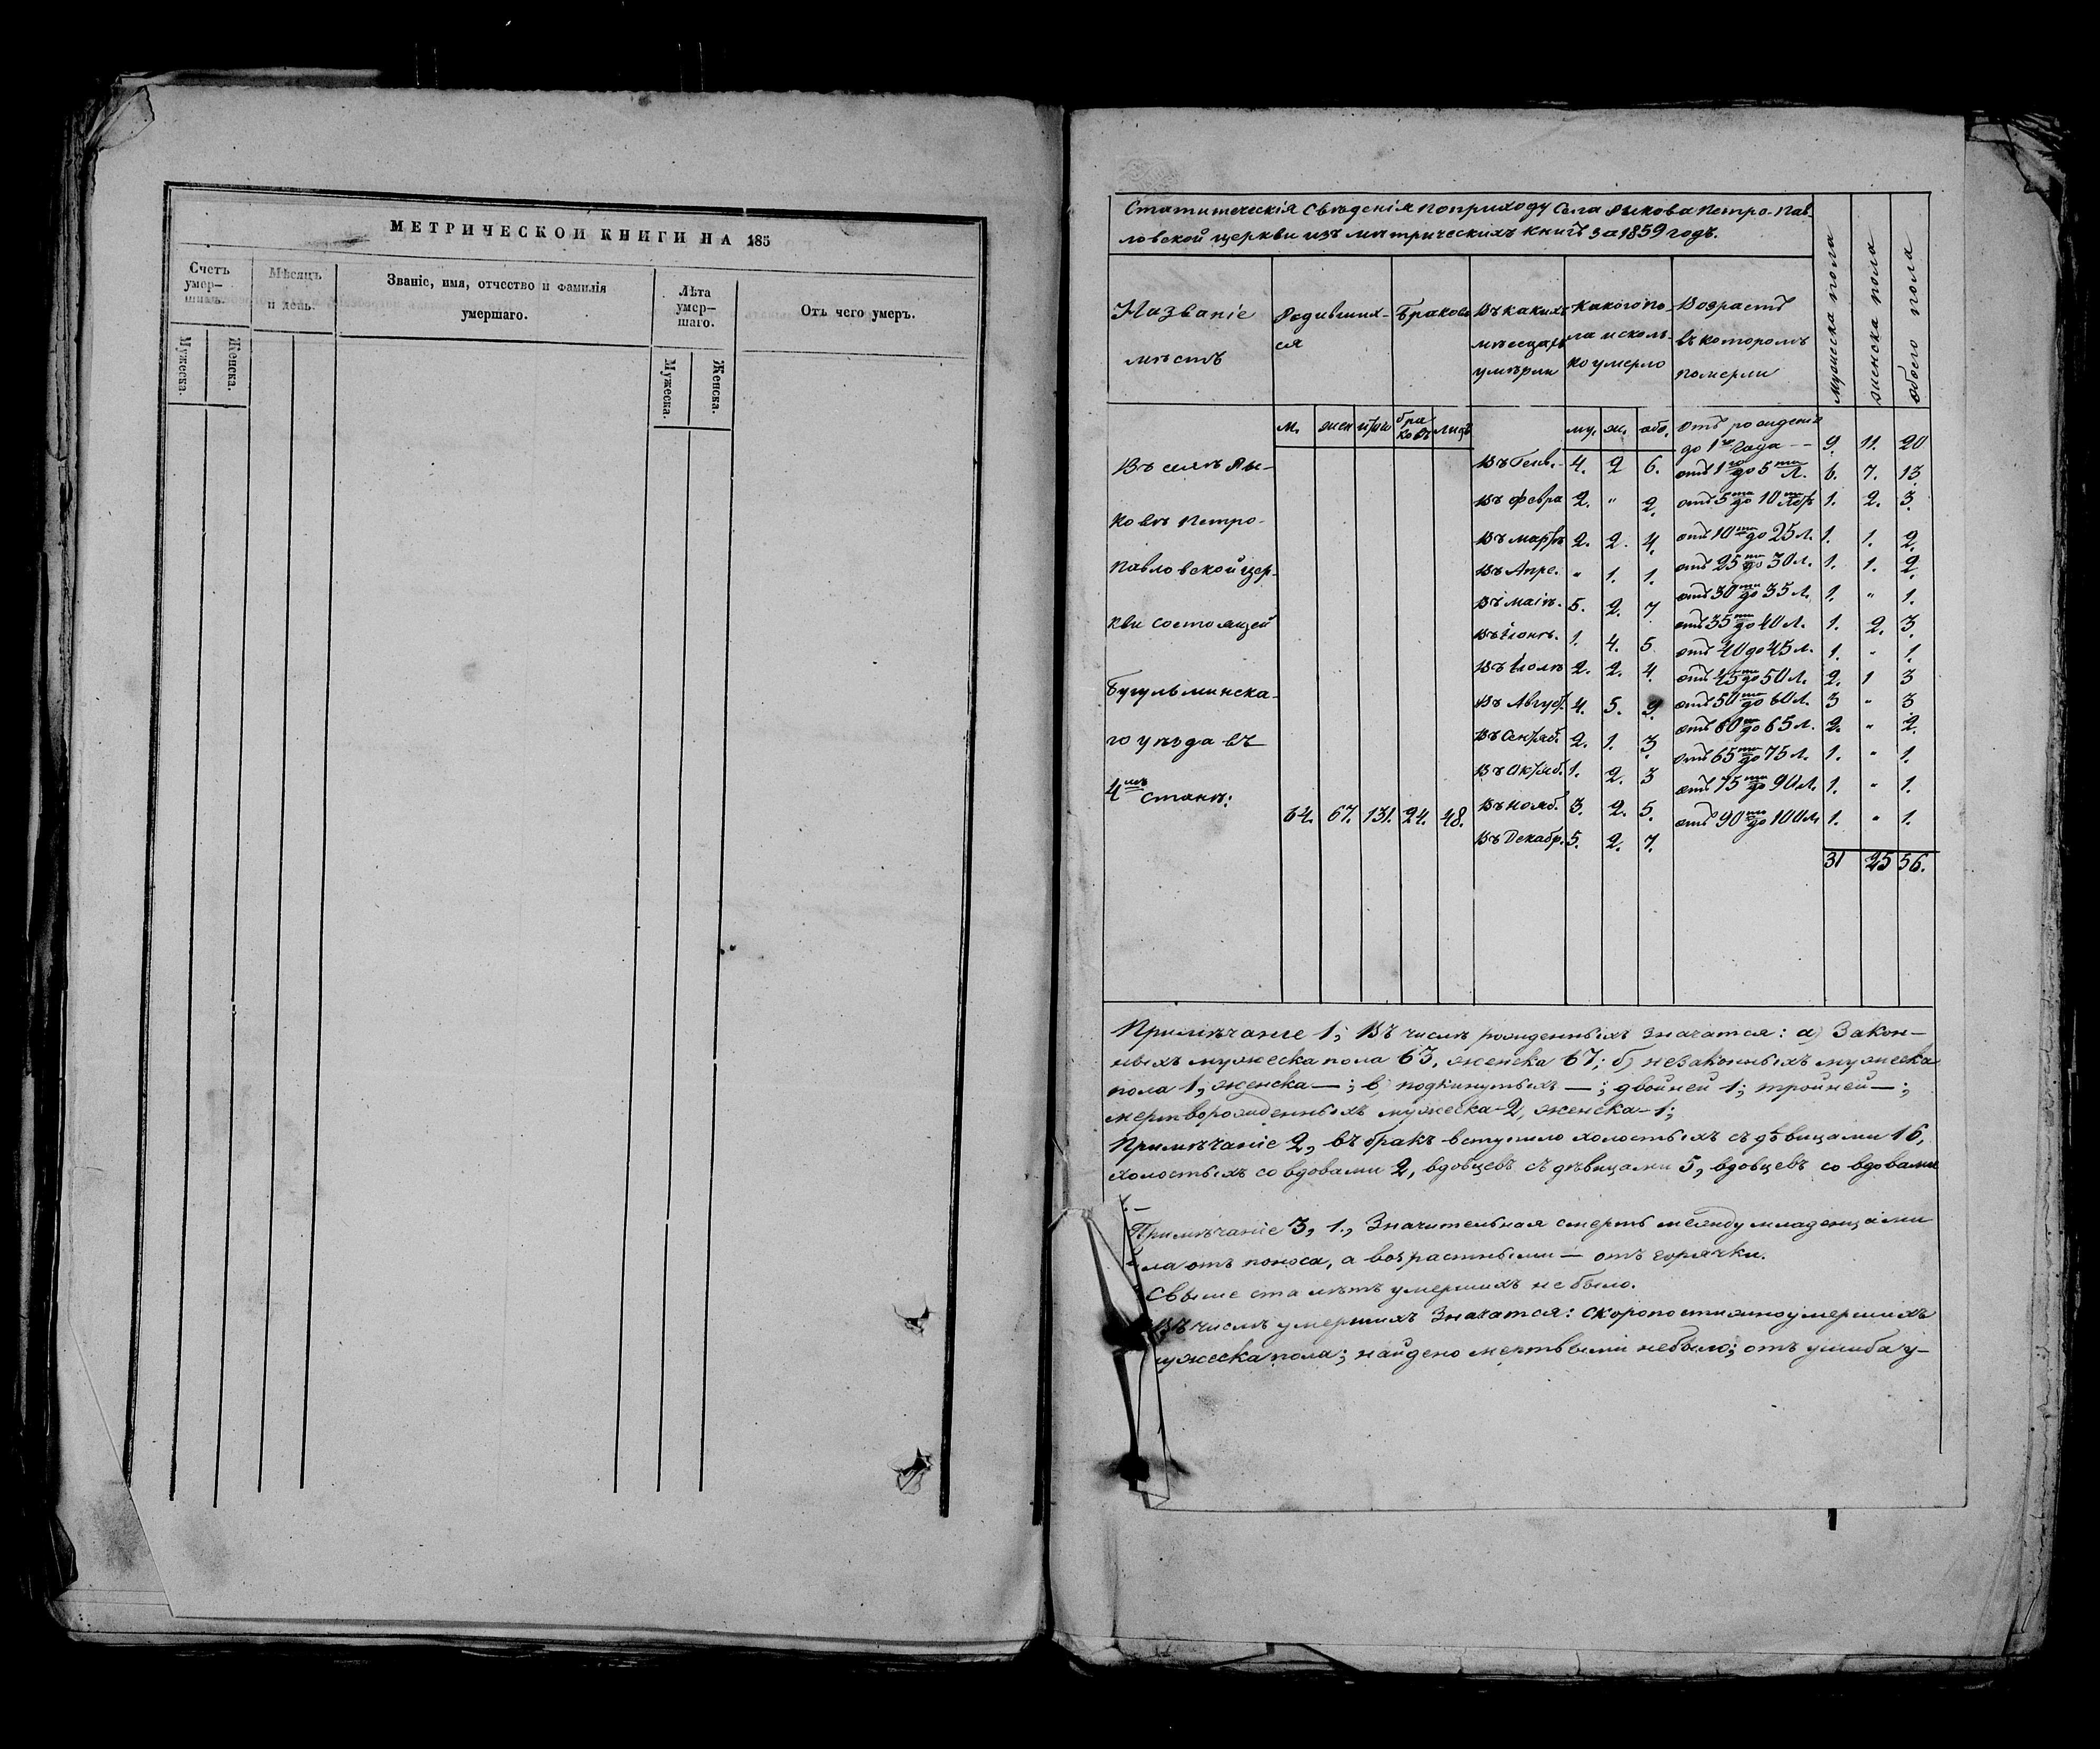 МЕТРИЧЕСКОЙ КНИГИ НА 185
Счетъ умер-шихъ.
Мѣсяцъ и день.
Званіе, имя, отчество и фамилія умершаго.
Лѣта умер-шаго.
Отъ чего умеръ.
Мужеска.
Женска.
Мужеска.
Женска.
Статитическія Свѣденія поприходу Села Рыкова Петро-Пав-
ловской церкви изъ метрическихъ книгъ за 1859 годъ.
Названіе мѣстъ
Родивших-ся
Браковъ
Въ какихъ мѣсецахъ умѣрли
Какого по-ла и сколь-ко умерло
Возрастъ въ которомъ померли
Мужеска пола
женска пола
обоего пола
м. жен бра ковъ лицъ му. ж. обо.
отъ рожденія до 1го Года -- 9. 11. 20
Въ селѣ Ры- Въ Генв. 4. 2 6. отъ 1го до 5ти Л. 6. 7. 13.
Въ февра 2. " 2. отъ 5ти до 10ти 1. 2. 3.
ковѣ Петро-
Въ мартѣ 2. 2. 4. отъ 10ти до 25 Л. 1. 1. 2.
Павловской цер- Въ Апре. " 1. 1. отъ 25ти до 30 Л. 1. 1. 2.
Въ маіѣ. 5. 2. 7 отъ 30ти до 35 Л. 1. " 1.
кви состоящей отъ 35ти до 40 Л. 1. 2. 3.
Въ Іюнѣ. 1. 4. 5 отъ 40 до 45 Л. 1. " 1.
Въ Іюлѣ 2. 2. 4. отъ 45ти до 50 Л. 2. 1 3
Бугульминска-
Въ Август. 4. 5. 9. отъ 50ти до 60 Л. 3 " 3
го уѣзда въ Въ Сентяб. 2. 1. 3 отъ 60ти до 65 Л. 2. " 2.
Въ Октяб. 1. 2. 3 отъ 65ти до 75 Л. 1. " 1.
4мъ Станѣ: отъ 75ти до 90 Л. 1. " 1.
64. 67. 131. 24. 48. Въ Нояб. 3. 2. 5. отъ 90ти до 100 Л. 1. " 1.
Въ Декабр. 5. 2. 7.
31 25 56.
Примѣчаніе 1; Въ числѣ рожденныхъ значатся: а) Закон-
ныхъ мужеска пола 63, женска 67; б) незаконныхъ мужеска
пола 1, женска — ; в) подкинутыхъ — ; двойней 1; тройней — ;
мертворожденныхъ мужеска-2, женска-1;
Примѣчаніе 2, въ бракъ вступило холостыхъ съ дѣвицами 16,
холостыхъ со вдовами 2, вдовцевъ съ дѣвицами 5, вдовцевъ со вдовами
1.—
Примѣчаніе 3, 1., Значительная смерть между младенцами
была отъ поноса, а возрастными — отъ горячки.
Свыше ста лѣтъ умершихъ не было.
Въ числѣ умершихъ Значатся: скоропостижно умершихъ
мужеска пола; найдено мертвыми небыло; отъ ушиба у-